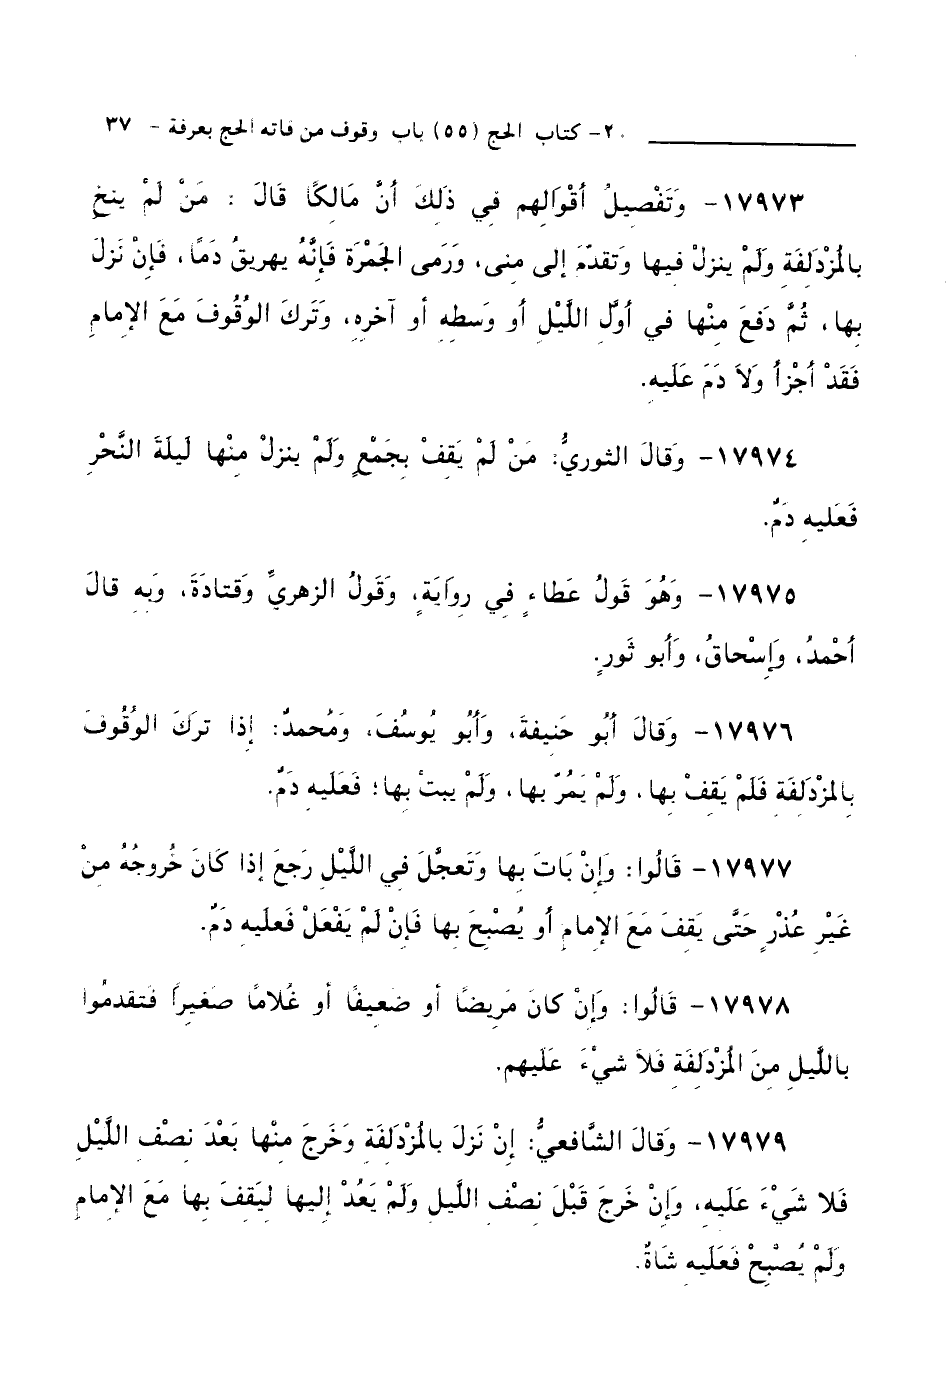 ٢٠- كتاب الحج (٥٥) باب وقوف من فاته الحج بعرفة - ٣٧
١٧٩٧٣- وَتَفْصِيلُ أقْوَالِهِم فِي ذلكَ أنَّ مَالكًا قَالَ : مَنْ لَمْ ينخ
بالمُزْدلفَةِ ولَمْ ينزلْ فيها وتقدَّمَ إلى منى، ورَمى الجَمْرَة فَإنَّهُ يهريقُ دَمًا، فَإنْ نَزلَ
بِها، ثُمَّ دَفعَ منْها في أوَّلِ اللَّيْلِ أو وَسطهِ أو آخرهِ، وتَركَ الوُقُوفَ مَعَ الإمامِ
فَقَدْ أجْزأ وَلاَ دَمَ عَلَيهِ.
١٧٩٧٤- وَقالَ الثوريُّ: مَنْ لَمْ يَقِفْ بِجَمْعٍ ولَمْ ينزلْ منْها لَيلَةَ النَّحْرِ
فَعَليهِ دَمٌ.
١٧٩٧٥- وَهُوَ قَولُ عَطاءٍ فِي روايَةٍ، وَقَولُ الزهريِّ وَقتادَةَ، وَبهِ قالَ
أحْمدُ، وَإسْحاقُ، وَأبو ثَورٍ.
١٧٩٧٦- وَقالَ أبُو حَنيفةَ، وَأبُو يُوسُفَ، وَمُحمدٌ: إذا تركَ الوُقُوفَ
بالمزْدَلفَةِ فَلَمْ يَقفْ بِها، ولَمْ يَمُرّ بها، ولَمْ يبتْ بِها؛ فَعَليهِ دَمٌ.
١٧٩٧٧- قَالُوا: وَإنْ بَاتَ بِها وَتَعجَّلَ في اللَّيْلِ رَجعَ إذا كَانَ خُروجُهُ منْ
غَيْرِ عُذْرٍ حَتَّى يَقِفَ مَعَ الإمامِ أو يُصْبحَ بِها فَإنْ لَمْ يَفْعَلْ فَعليهِ دَمٌ.
١٧٩٧٨- قَالُوا: وَإنْ كانَ مَريضًا أو ضَعيفًا أو غُلامًا صَغيراً فَتقدمُوا
باللَّيلِ منَ المُزْدَلفَةِ فَلاَ شيْءَ عَلَيهم.
١٧٩٧٩- وَقالَ الشَّافعيُّ: إنْ نَزلَ بالمُزْدَلفَةِ وَخَرجَ منْها بَعْدَ نصْفِ اللَّيْلِ
فَلا شَيْءَ عَلَيهِ، وَإنْ خَرجَ قَبْلَ نصْفِ اللَّيلِ ولَمْ يَعُدْ إليها ليَقفَ بِها مَعَ الإمامِ
ولَمْ يُصْبِحْ فَعَلَيهِ شَاةٌ.